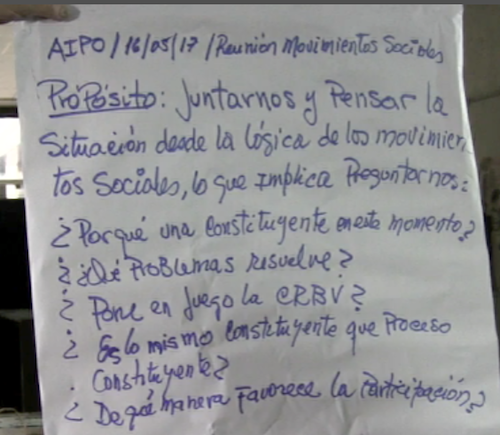 AIPO/16/05/17/Reunión Movimientos Sociales
Propósito: Juntarnos y Pensar la
Situación desde la lógica de los movimien
tos Sociales, lo que implica Preguntarnos:
¿Porqué una constituyente en este momento?
¿Qué Problemas resuelve?
¿Pone en juego la CRBV?
¿Es lo mismo constituyente que Proceso
Constituyente?
¿De qué manera Favorece la Participación?